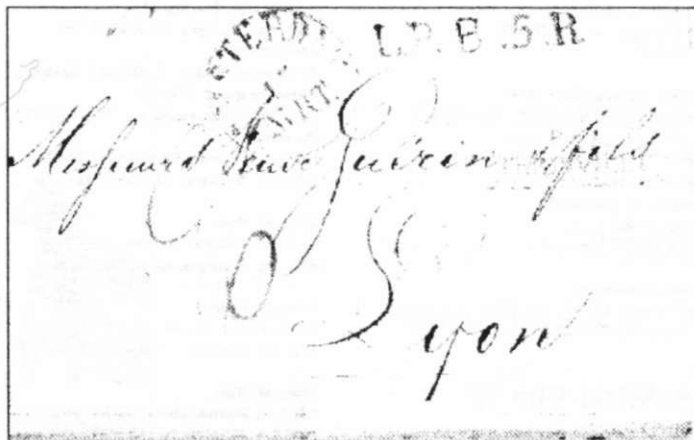 L.P.B.5.R
Messieurs Veuve Guérin & fils
Lyon